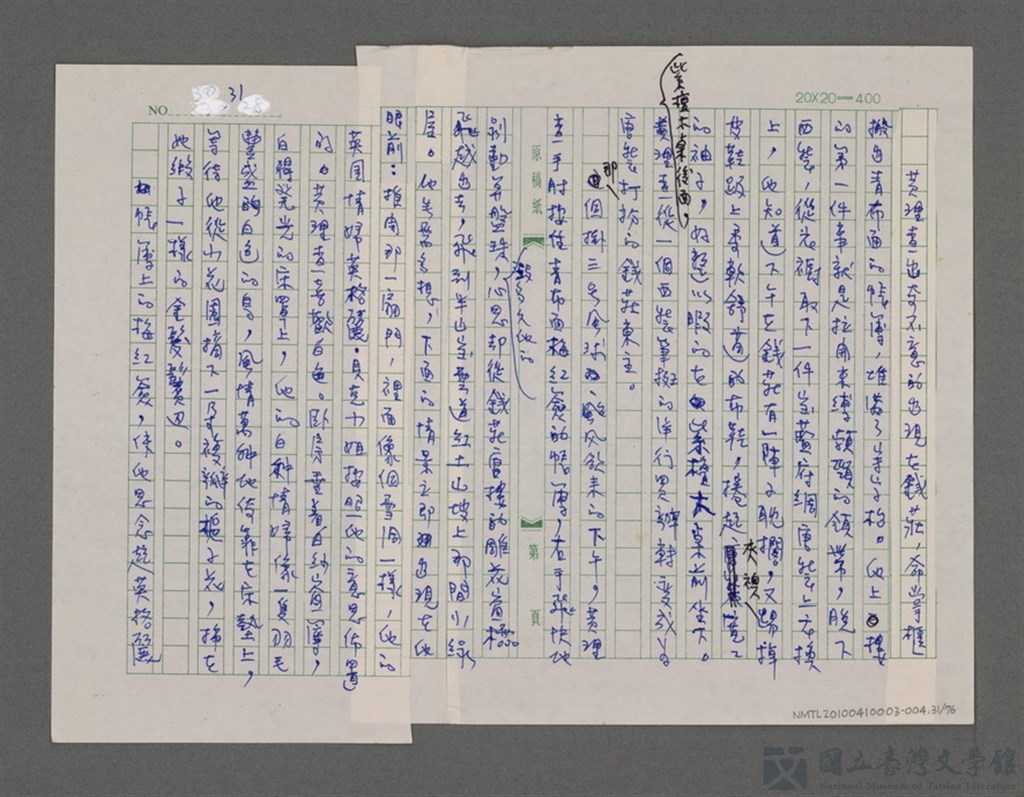 20X20=400
黃理查出其不意的出現在錢莊，命掌櫃
搬出青布面的帳簿，堆滿了半尺高。他上樓
的第一件事就是拉開束縛頸頸的領帶，脫下
西裝，從衣櫥取下一件寶藍府綢唐裝上衣換
上，他知道下午在錢莊有一陣子耽擱，又踢掉
皮鞋趿上柔軟舒適的布鞋，捲起夾襖寬寬
的袖子，好整以暇的在紫檀木桌前坐下。
紫檀木桌後面，
黃理查從一個西裝筆挺的洋行買辦轉變成
唐裝打扮的錢莊東主。
那個掛三號風球颱風欲來的下午，黃理
查一手肘按住青布面梅紅簽的帳簿，右手飛快地
剝動算盤珠，心思卻從錢莊唐樓的雕花窗櫺
飛越出去，飛到半山雲道紅土山坡上那間小綠
屋。他無需多想，下面的情景立即出現在他
眼前：推開那一扇門，裡面像個雪洞一樣，他的
英國情婦英格麗·貝克小姐按照他的意思佈置
的。黃理查喜歡白色。臥房垂著白紗窗簾，
白得發光的床罩上，他的白種情婦像一隻羽毛
豐盛白色的鳥，風情萬種地倚靠在床墊上，
等待他從小花園摘下一朵複瓣的梔子花，插在
她緞子一樣的金髮鬢邊。
帳簿上的梅紅簽，使他思念起英格麗
NO 31
原稿紙
第 頁
NMTL20100410003-004.31/76
國立臺灣文學館
National Museum of Taiwan Literature